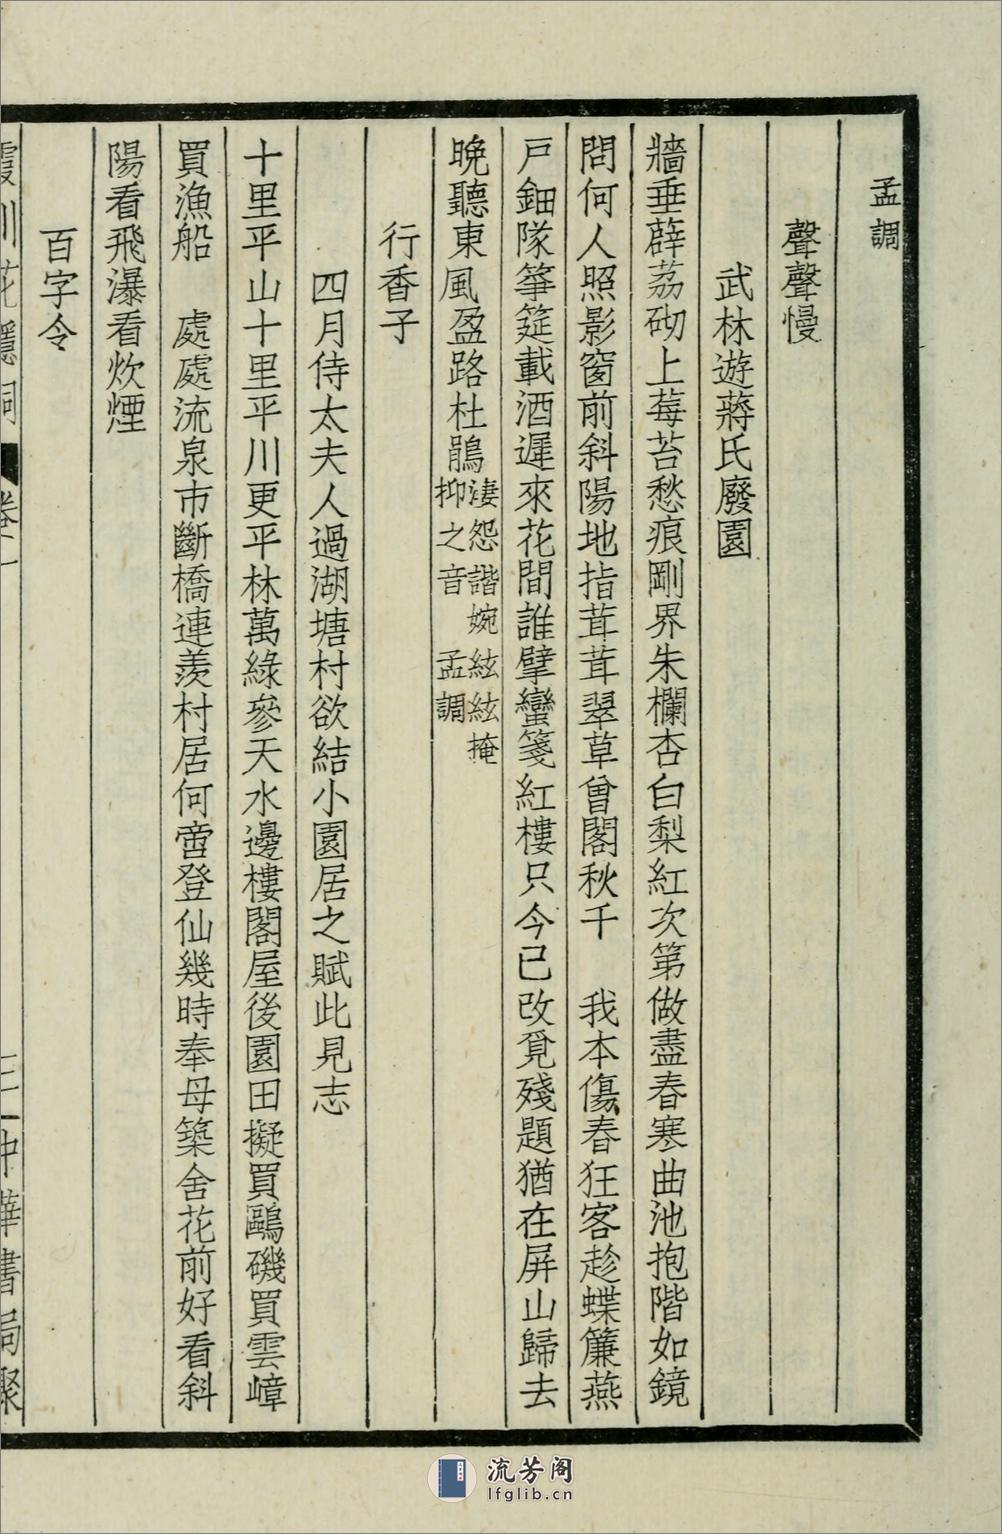 孟調
聲聲慢
武林遊蔣氏廢園
牆垂薜荔砌上莓苔愁痕剛界朱欄杏白梨紅次第做盡春寒曲池抱階如鏡
問何人照影窗前斜陽地指茸茸翠草曾閣秋千　我本傷春狂客趁蝶簾燕
戶鈿隊箏筵載酒遲來花間誰擘蠻箋紅樓只今已改覓殘題猶在屏山歸去
晚聽東風盈路杜鵑淒怨諧婉絃絃掩抑之音　孟調
行香子
四月侍太夫人過湖塘村欲結小園居之賦此見志
十里平山十里平川更平林萬綠參天水邊樓閣屋後園田擬買鷗磯買雲嶂
買漁船　處處流泉市斷橋連羨村居何啻登仙幾時奉母築舍花前好看斜
陽看飛瀑看炊煙
百字令
霞川花隱詞　卷一　三一中華書局聚
流芳阁
lfglib.cn